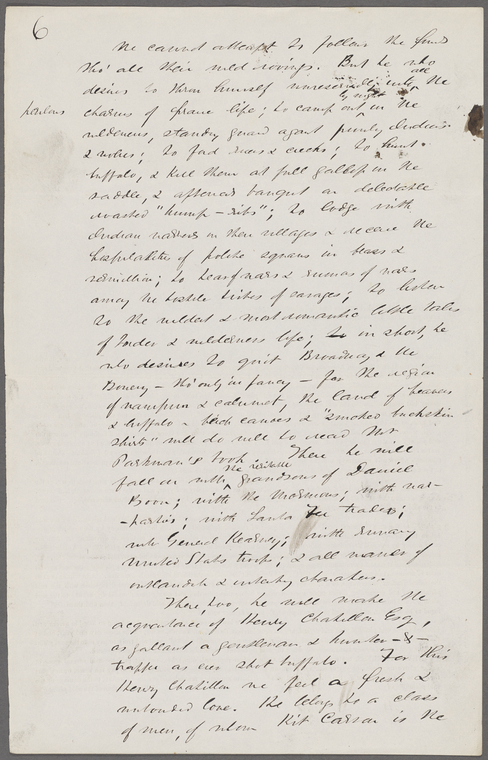 6
We cannot attempt to follow the
tho' all their wild rovings. But he who
all
desires to throw himself unreservedly into the
perilous
by night
charms of prairie life; to camp out in the
wilderness, standing guard against prowling Indians
& wolves; to ford rivers & creeks; to hunt
buffalo, & kill them at full gallop in the
saddle, & afterwards banquet on delectable
roasted "hump-ribs"; to lodge with
Indian warriors in their villages & receive the
hospitalities of polite squaws in brass &
vermillion; to hear of wars & rumors of wars
among the hostile tribes of savages; to listen
to the wildest & most romantic little tales
of border & wilderness life; to in short, he
who desires to quit Broadway & the
Bowery — tho' only in fancy — for the region
of wampum & calumet, the land of beavers
& buffalo — birch canoes & "smoked buckskin
shirts" will do well to read Mr
Parkman's book. There he will
the veritable
fall in with grandsons of Daniel
Boon; with the Mormons; with war-
-parties; with Santa Fee traders;
with General Kearney; with runaway
United States troops; & all manner of
outlandish & interesting characters.
There, too, he will make the
acquaintance of Henry Chatillon Esq,
as gallant a gentleman & hunter - & -
trapper as ever shot buffalo. For this
Henry Chatillon we feel a fresh &
unbounded love. He belongs to a class
of men, of whom Kit Carson is the